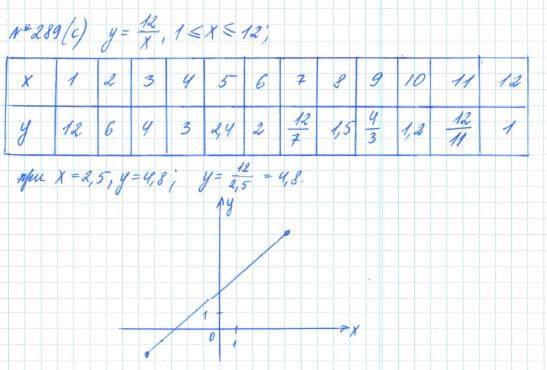 №289(с) y = 12/x, 1 ≤ x ≤ 12;
x 1 2 3 4 5 6 7 8 9 10 11 12
y 12 6 4 3 2,4 2 12/7 1,5 4/3 1,2 12/11 1
при x = 2,5, y = 4,8; y = 12/2,5 = 4,8.
y
1
0 1 x